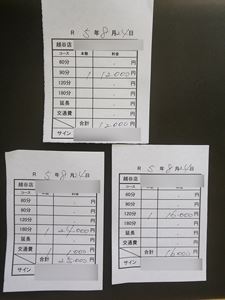 R 5年8月24日
越谷店
コース 本数 料金
60分 円
90分 1 12,000円
120分 円
180分 円
延長 円
交通費 円
合計 12,000円
サイン
R 5年8月24日
越谷店
コース
60分 円
90分 円
120分 円
180分 1 24,000円
延長 円
交通費 1 1,000円
合計 25,000円
サイン
R 5年8月24日
越谷店
コース
60分 円
90分 円
120分 1 16,000円
180分 円
延長 円
交通費 円
合計 16,000円
サイン